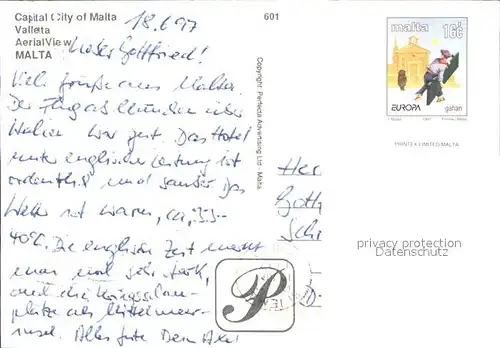 Capital City of Malta
Valletta
Aerial View
MALTA
18.6.97
601
Lieber Gottfried!
Viele Grüße aus Malta.
Der Flug ab München über
Italien war gut. Das Hotel
unter englischer Leitung ist
ordentlich und sauber. Das
Wetter ist warm, ca. 35-
40°C. Die englische Zeit merkt
man noch sehr stark,
und die
plätze als Mittelmeer-
insel. Alles Gute Dein Axel
Copyright: Perfecta Advertising Ltd - Malta
malta 16c
EUROPA
gahan
1997
PRINTEX LIMITED MALTA
Her
Gott
Sch
D-
P
privacy protection
Datenschutz